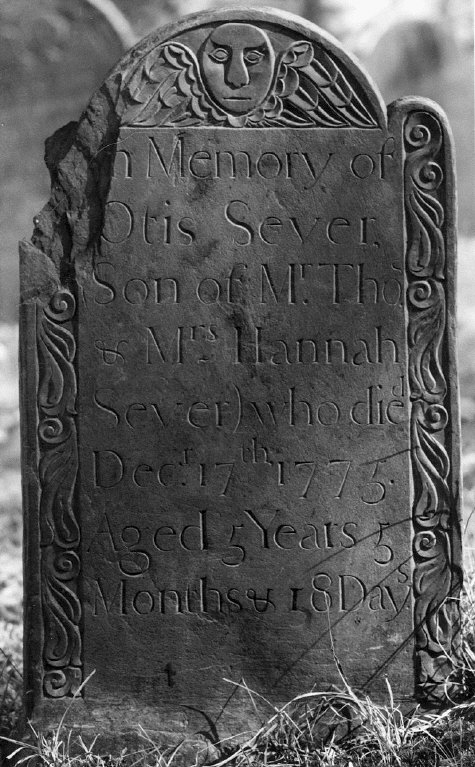 In Memory of
Otis Sever,
(Son of Mr. Tho
& Mrs Hannah
Sever) who died
Decr. 17th 1775.
Aged 5 Years 5
Months & 18 Days